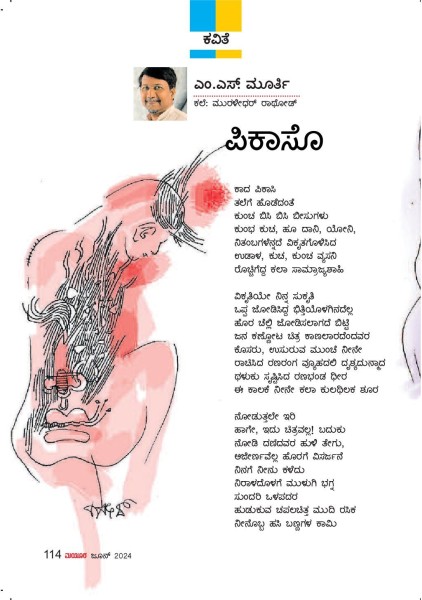 ಕವಿತೆ
ಎಂ.ಎಸ್. ಮೂರ್ತಿ
ಕಲೆ: ಮುರಳೀಧರ್ ರಾಥೋಡ್
ಪಿಕಾಸೊ
ಕಾದ ಪಿಕಾಸಿ
ತಲೆಗೆ ಹೊಡೆದಂತೆ
ಕುಂಚ ಬಿಸಿ ಬಿಸಿ ಬೀಸುಗಳು
ಕುಂಭ ಕುಚ, ಹೂ ದಾನಿ, ಯೋನಿ,
ನಿತಂಬಗಳೆನ್ನದೆ ವಿಕೃತಗೊಳಿಸಿದ
ಉಡಾಳ, ಕುಚ, ಕುಂಚ ವ್ಯಸನಿ
ರೊಚ್ಚಿಗೆದ್ದ ಕಲಾ ಸಾಮ್ರಾಜ್ಯಶಾಹಿ
ವಿಕೃತಿಯೇ ನಿನ್ನ ಸುಕೃತಿ
ಒಪ್ಪ ಜೋಡಿಸಿದ್ದ ಭಿತ್ತಿಯೊಳಗಿನದೆಲ್ಲ
ಹೊರ ಚೆಲ್ಲಿ ಜೋಡಿಸಲಾಗದೆ ಬಿಟ್ಟಿ
ಜನ ಕಣ್ಣೋಟ ಚಿತ್ರ ಕಾಣಲಾರದೆಂದವರ
ಕೊಸರು, ಉಸುರುವ ಮುಂಚೆ ನೀನೇ
ರಾಚಿಸಿದ ರಣರಂಗ ವ್ಯೂಹದಲಿ ದೃಶ್ಯದುನ್ಮಾದ
ಥಳುಕು ಸೃಷ್ಟಿಸಿದ ರಣಭಂಡ ಧೀರ
ಈ ಕಾಲಕೆ ನೀನೇ ಕಲಾ ಕುಲಧಿಲಕ ಶೂರ
ನೋಡುತ್ತಲೇ ಇರಿ
ಹಾಗೇ, ಇದು ಚಿತ್ರವಲ್ಲ! ಬದುಕು
ನೋಡಿ ದಣಿದವರ ಹುಳಿ ತೇಗು,
ಆಜೀರ್ಣವೆಲ್ಲ ಹೊರಗೆ ವಿಸರ್ಜನೆ
ನಿನಗೆ ನೀನು ಕಳೆದು
ನಿರಾಳದೊಳಗೆ ಮುಳುಗಿ ಭಗ್ನ
ಸುಂದರಿ ಒಳಪದರ
ಹುಡುಕುವ ಚಪಲಚಿತ್ತ ಮುದಿ ರಸಿಕ
ನೀನೊಬ್ಬ ಹಸಿ ಬಣ್ಣಗಳ ಕಾಮಿ
114 ಮಯೂರ ಜೂನ್ 2024